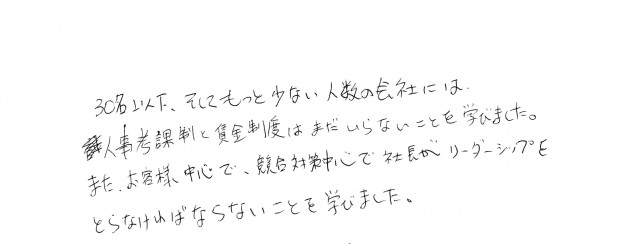 30名以下、そしてもっと少ない人数の会社には
人事考課制と賃金制度はまだいらないことを学びました。
また、お客様中心で、競合対策中心で社長がリーダーシップを
とらなければならないことを学びました。